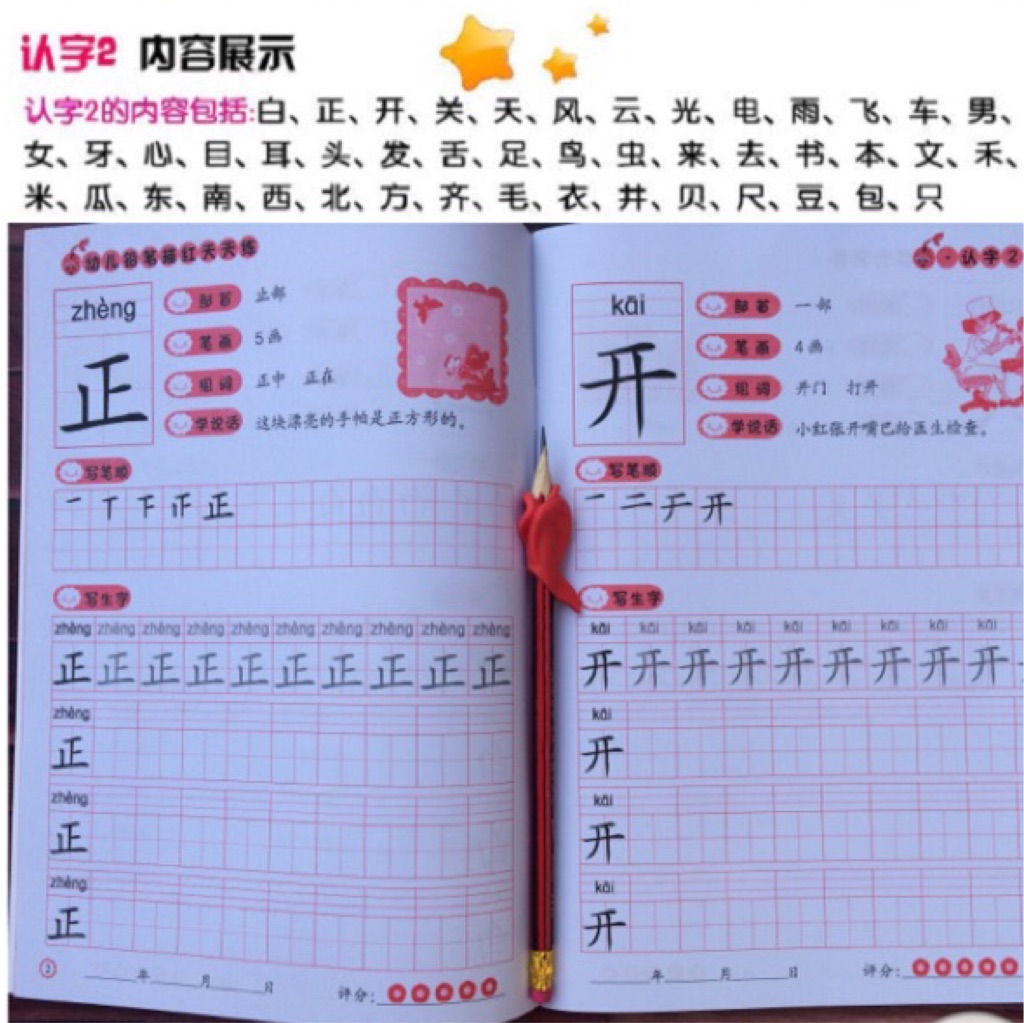 认字2 内容展示
认字2的内容包括:白、正、开、关、天、风、云、光、电、雨、飞、车、男、
女、牙、心、目、耳、头、发、舌、足、鸟、虫、来、去、书、本、文、禾、
米、瓜、东、南、西、北、方、齐、毛、衣、井、贝、尺、豆、包、只
幼儿铅笔描红天天练
zhèng
正
部首 止部
笔画 5画
组词 正中 正在
学说话 这块漂亮的手帕是正方形的。
写笔顺
正
写生字
zhèng zhèng zhèng zhèng zhèng zhèng zhèng zhèng zhèng zhèng
正 正 正 正 正 正 正 正 正 正
zhèng
正
zhèng
正
zhèng
正
2
年 月 日
评分:
·认字2
kāi
开
部首 一部
笔画 4画
组词 开门 打开
学说话 小红张开嘴巴给医生检查。
写笔顺
一 二 开 开
写生字
kāi kāi kāi kāi kāi kāi kāi kāi kāi
开 开 开 开 开 开 开 开 开
kāi
开
kāi
开
kāi
开
年 月 日
评分: